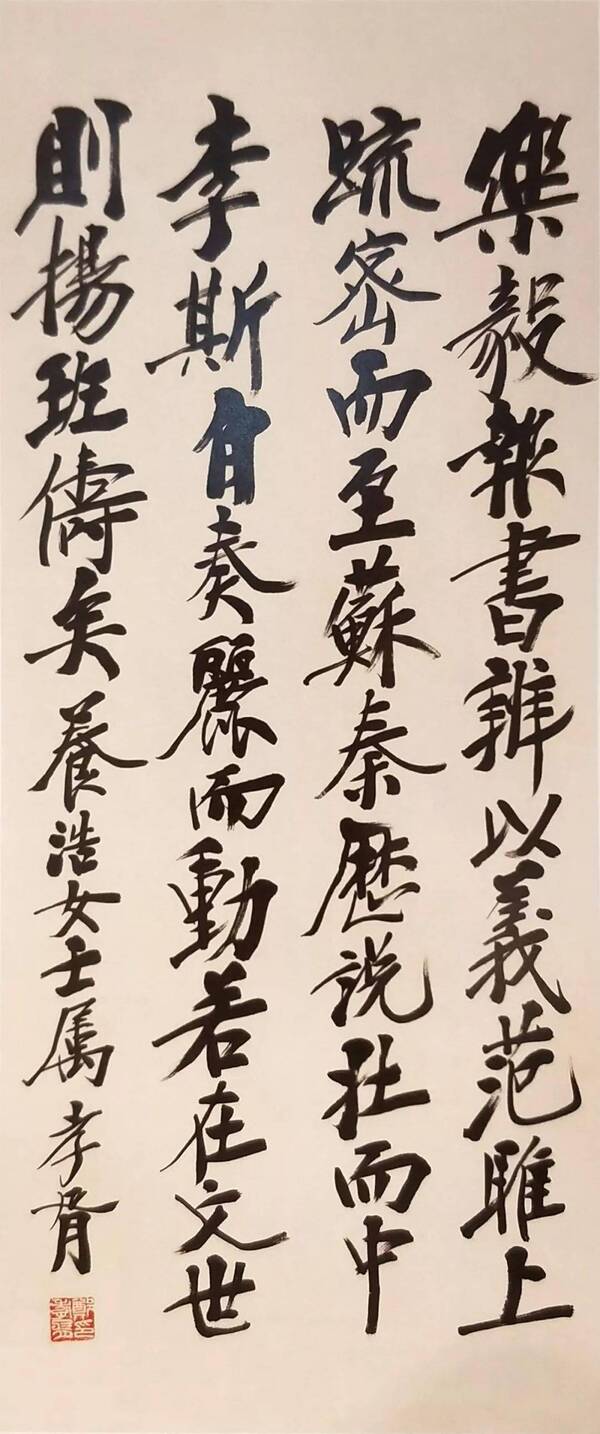 樂毅報書辨以義范雎上
疏密而至蘇秦歷説壯而中
李斯自奏麗而動若在文世
則揚班儔矣養浩女士属孝胥